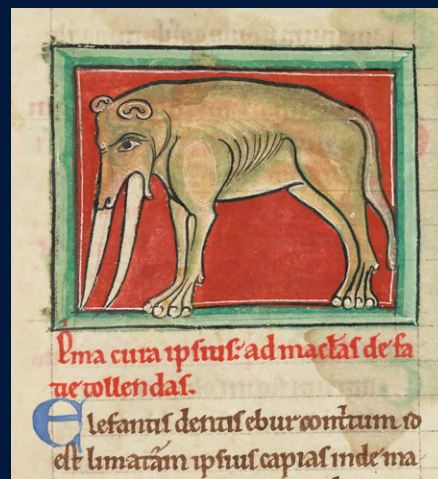 P̃ma cura ipsius. ad maclas de fa
cie tollendas.
Elefantis dentis ebur contritum id
est limatam ipsius capias inde ma